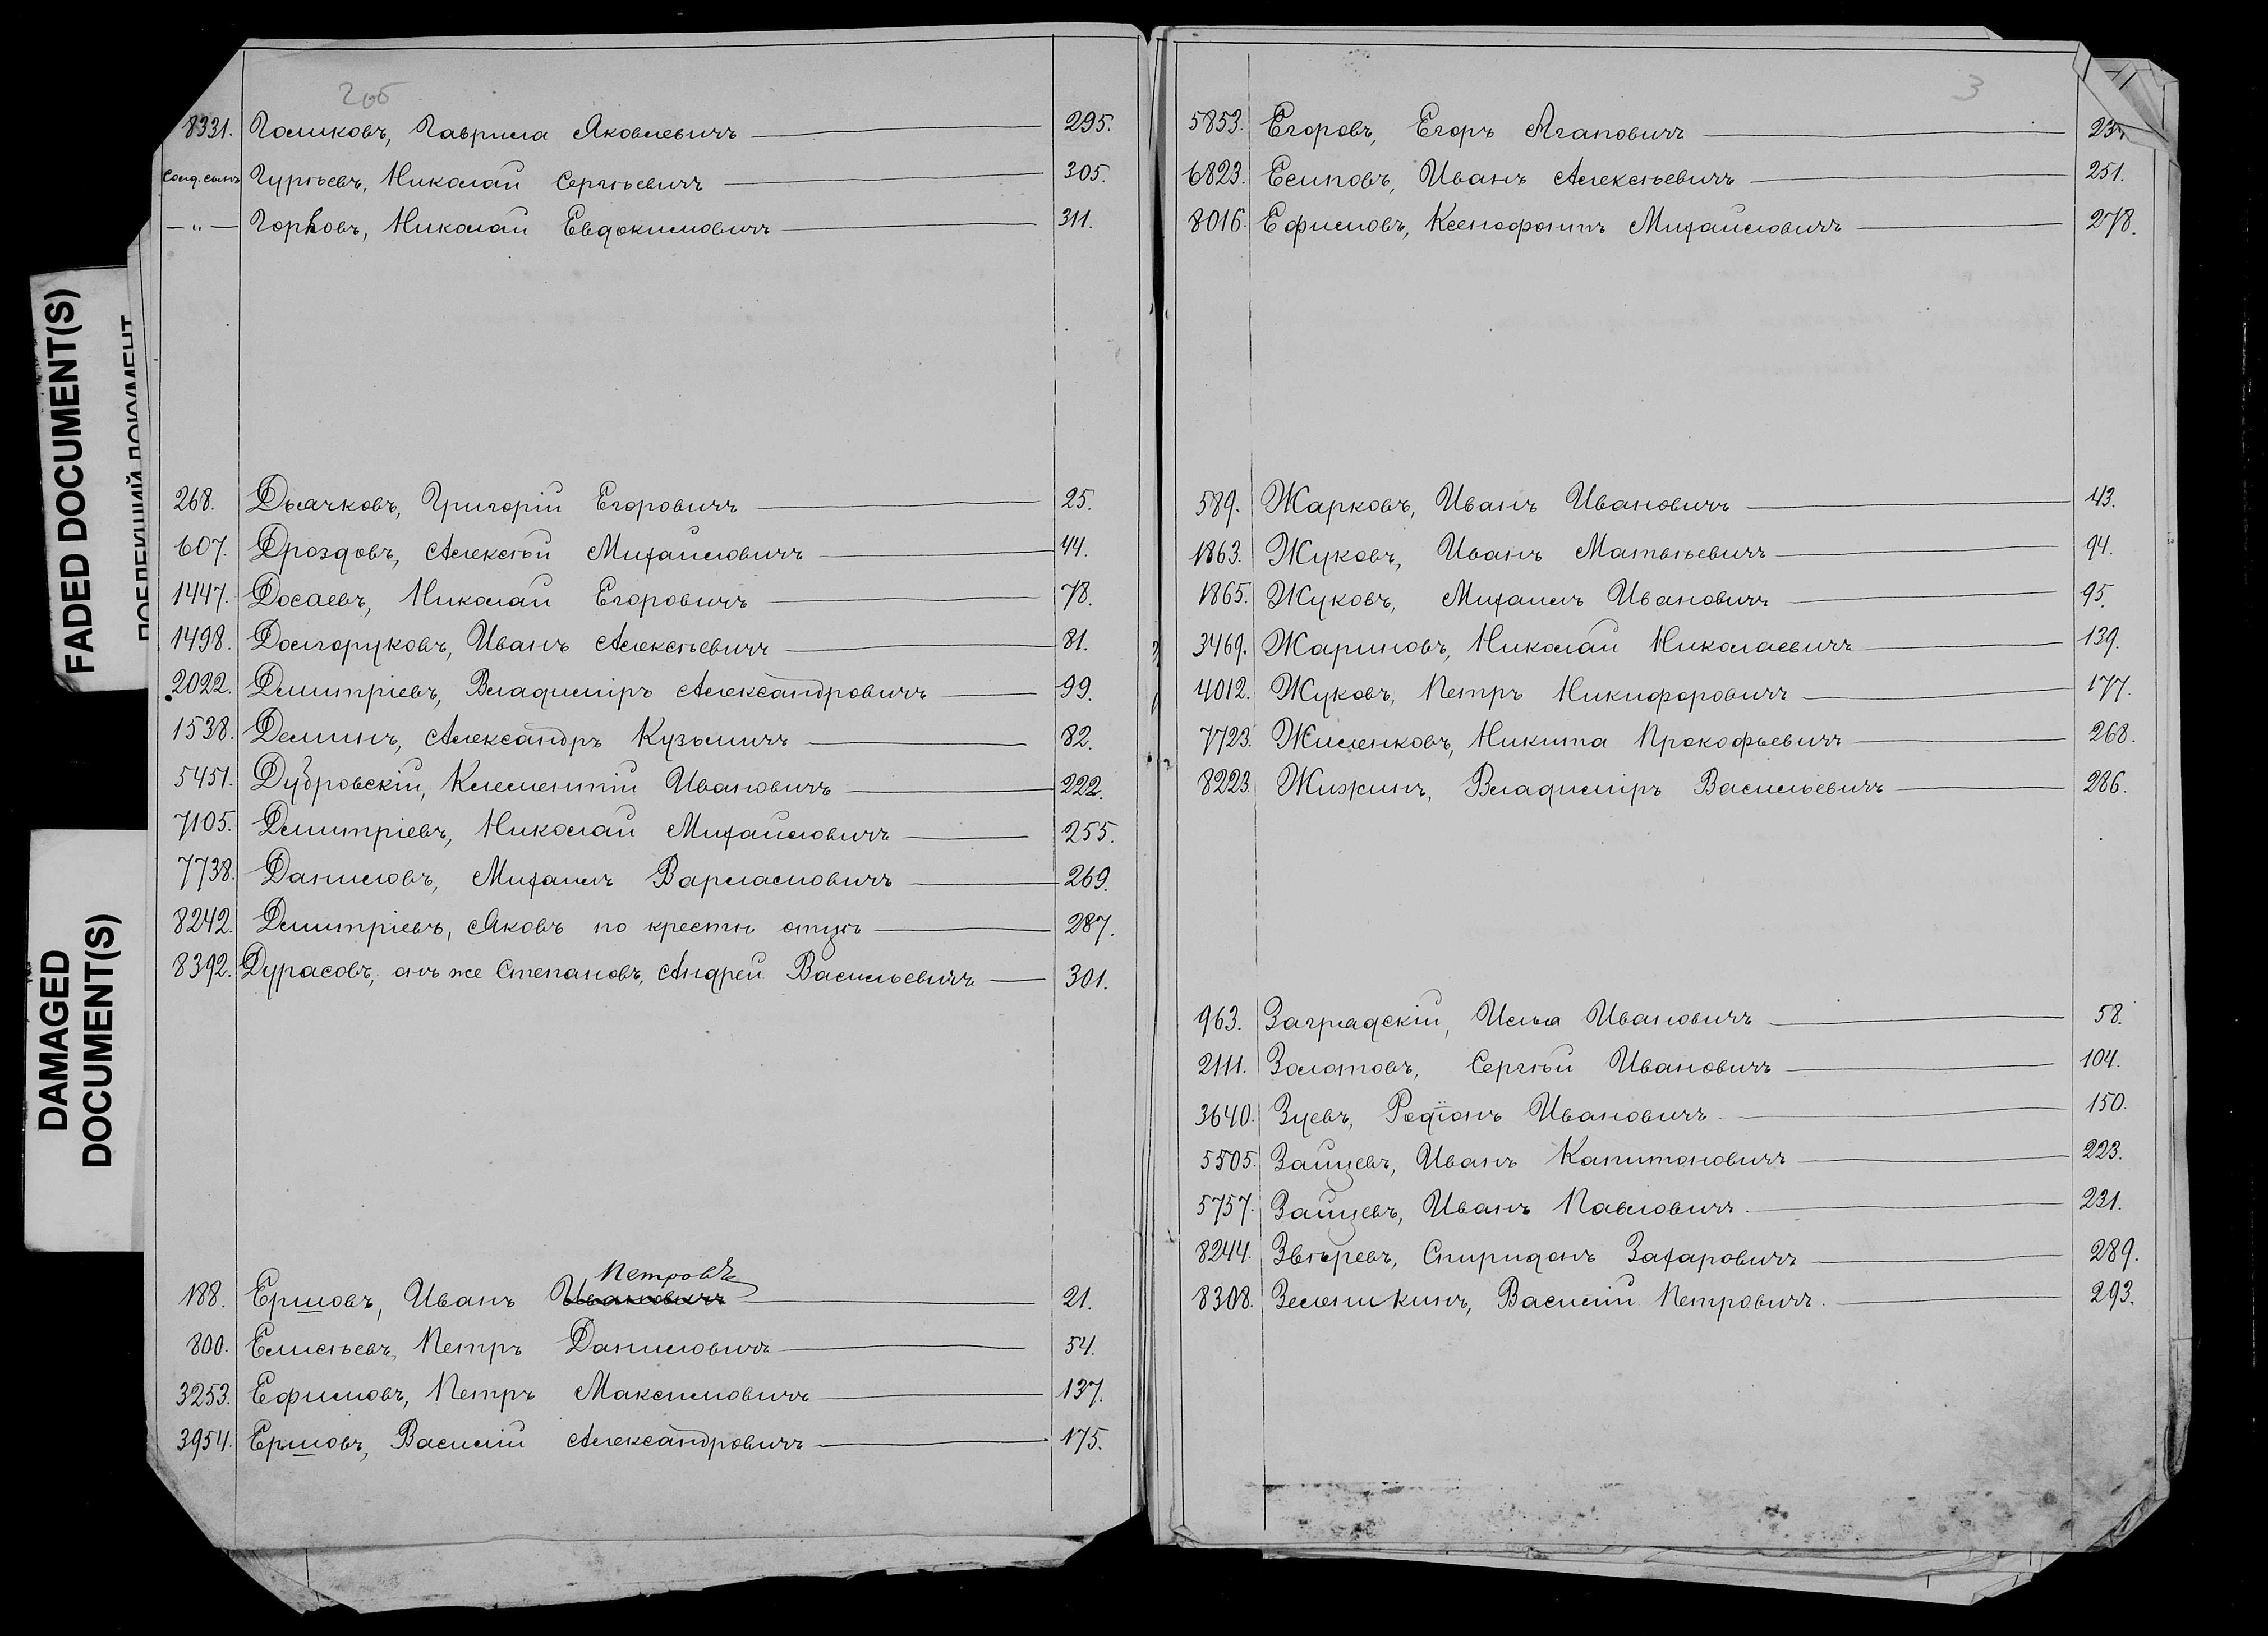 FADED DOCUMENT(S)
DAMAGED
DOCUMENT(S)
2об
8331. Голиковъ, Гаврила Яковлевичъ 295.
Солд. сынъ Гурьевъ, Николай Сергѣевичъ 305.
—"— Горховъ, Николай Евдокимовичъ 311.
268. Дьячковъ, Григорій Егоровичъ 25.
607. Дроздовъ, Алексѣй Михайловичъ 44.
1447. Досаевъ, Николай Егоровичъ 78.
1498. Долгоруковъ, Иванъ Алексѣевичъ 81.
2022. Дмитріевъ, Владиміръ Александровичъ 99.
1538. Деминъ, Александръ Кузьмичъ 82.
5451. Дубровскій, Климентій Ивановичъ 222.
7105. Дмитріевъ, Николай Михайловичъ 255.
7738. Даниловъ, Михаилъ Варламовичъ 269.
8242. Дмитріевъ, Яковъ по крестн. отцу 287.
8392. Дурасовъ, онъ же Степановъ, Андрей Васильевичъ 301.
Петровъ
188. Ершовъ, Иванъ Ивановичъ 21.
800. Елисѣевъ, Петръ Даниловичъ 54.
3253. Ефимовъ, Петръ Максимовичъ 137.
3954. Ершовъ, Василій Александровичъ 175.
3
5853. Егоровъ, Егоръ Агаповичъ 237.
6823. Есиповъ, Иванъ Алексѣевичъ 251.
8016. Ефимовъ, Ксенофонтъ Михайловичъ 278.
589. Жарковъ, Иванъ Ивановичъ 43.
1863. Жуковъ, Иванъ Матвѣевичъ 94.
1865. Жуковъ, Михаилъ Ивановичъ 95.
3469. Жариновъ, Николай Николаевичъ 139.
4012. Жуковъ, Петръ Никифоровичъ 177.
7723. Жиленковъ, Никита Прокофьевичъ 268.
8223. Жижинъ, Владиміръ Васильевичъ 286.
963. Заградскій, Илья Ивановичъ 58.
2111. Золотовъ, Сергѣй Ивановичъ 104.
3640. Зуевъ, Родіонъ Ивановичъ 150.
5505. Зайцевъ, Иванъ Капитоновичъ 223.
5757. Зайцевъ, Иванъ Павловичъ 231.
8244. Звѣревъ, Спиридонъ Захаровичъ 289.
8308. Зеленкинъ, Василій Петровичъ 293.